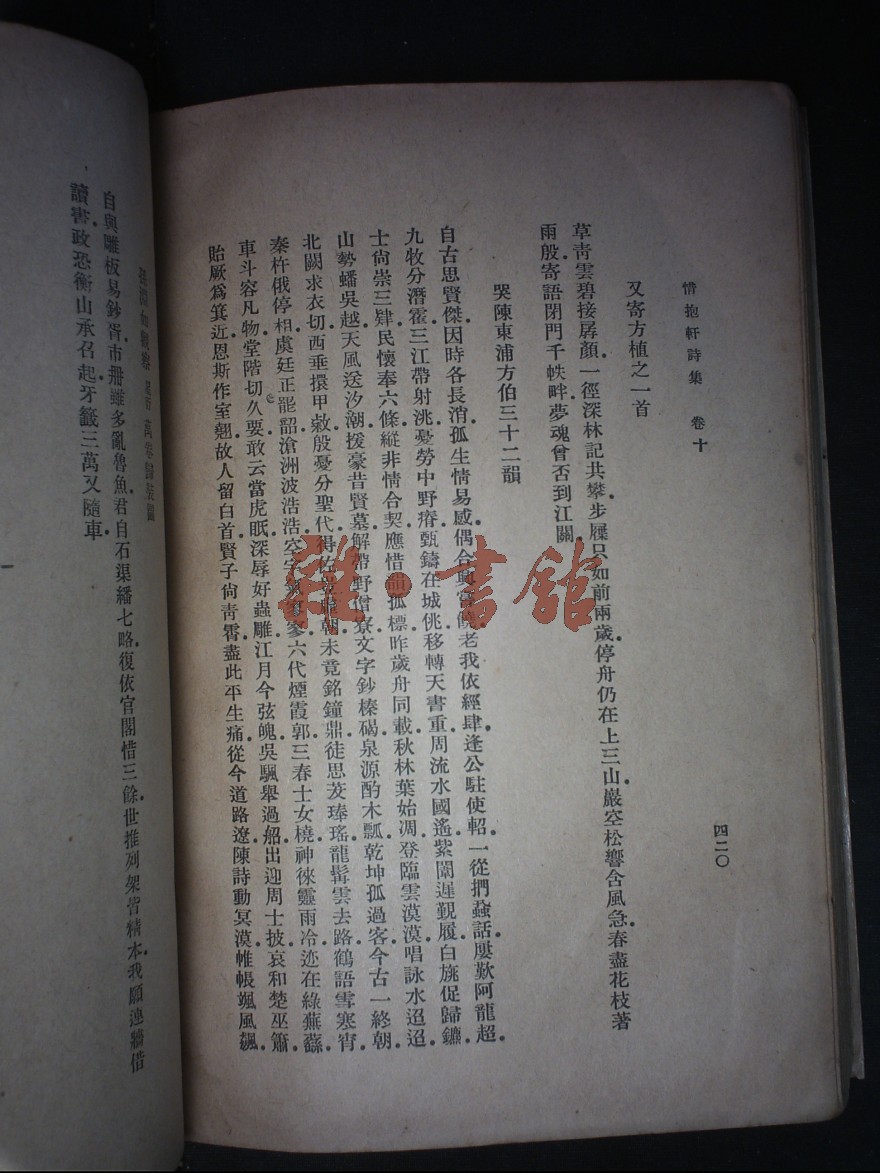 惜抱軒詩集　卷十
四二〇
又寄方植之一首
草靑雲碧接孱顏一徑深林記共攀步屧只如前兩歲停舟仍在上三山巖空松響含風急春盡花枝著
雨殷寄語閉門千帙畔夢魂曾否到江關
哭陳東浦方伯三十二韻
自古思賢傑因時各長消孤生情易感偶合興老我依經肆逢公駐使軺一從捫蝨話屢歎阿龍超
九牧分潛霍三江帶射洮憂勞中野瘠甄鑄在城佻移轉天書重周流水國遙紫闥遲覲履白旄促歸鑣
士尙崇三肆民懷奉六條縱非情合契應惜孤標昨歲舟同載秋林葉始凋登臨雲漠漠唱詠水迢迢
山勢蟠吳越天風送汐潮援豪昔賢墓解帶野僧寮文字鈔榛碣泉源酌木瓢乾坤孤過客今古一終朝
北闕求衣切西垂擐甲敹殷憂分聖代得佐朝未竟銘鐘鼎徒思茇琫瑤龍髯雲去路鶴語雪寒宵
秦杵俄停相虞廷正罷韶滄洲波浩浩空六代煙霞郭三春士女橈神徠靈雨冷迹在綠蕪蘇
車斗容凡物堂階切久要敢云當虎眂深辱好蟲雕江月今弦魄吳颿舉過船出迎周士披哀和楚巫簫
貽厥爲箕近恩斯作室翹故人留白首賢子尙靑霄盡此平生痛從今道路遼陳詩動冥漠帷帳颯風飆
萬卷歸裝圖
自與雕板易鈔胥市冊雖多亂魯魚君自石渠繙七略復依官閣惜三餘世推列架皆精本我願連牆借
讀書政恐衡山承召起牙籤三萬又隨車
雜·書館